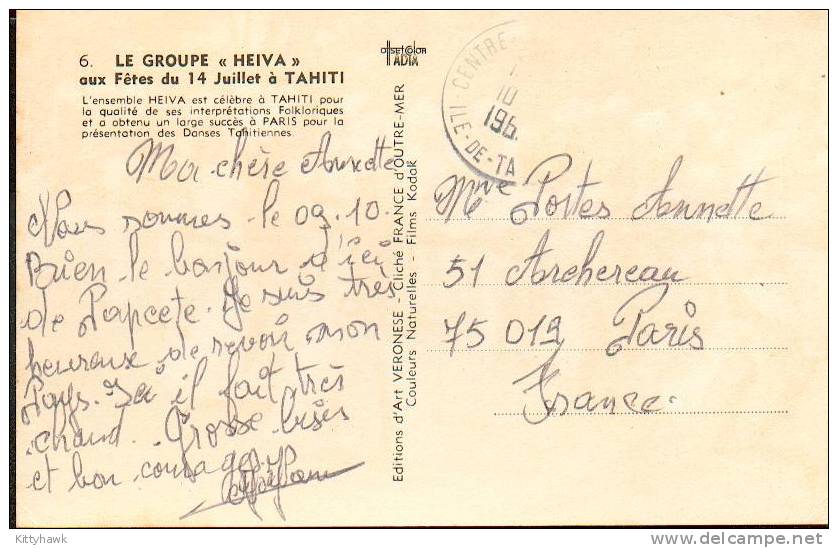 6. LE GROUPE « HEIVA »
aux Fêtes du 14 Juillet à TAHITI
L'ensemble HEIVA est célèbre à TAHITI pour
la qualité de ses interprétations Folkloriques
et a obtenu un large succès à PARIS pour la
présentation des Danses Tahitiennes.
Ma chère Annette
Nous sommes le 09.10.
Bien le bonjour d'ici
de Papeete. Je suis très
heureuse de revoir mon
Pays. Ici il fait très
chaud. Grosse bises
et bon courage
offsetcolor
IADIM
Editions d'Art VERONESE - Cliché FRANCE D'OUTRE-MER
Couleurs Naturelles - Films Kodak
CENTRE
10
196
ILE-DE-TA
Mme Portes Annette
51 Archereau
75 019 Paris
France.
Kittyhawk
www.delcampe.net